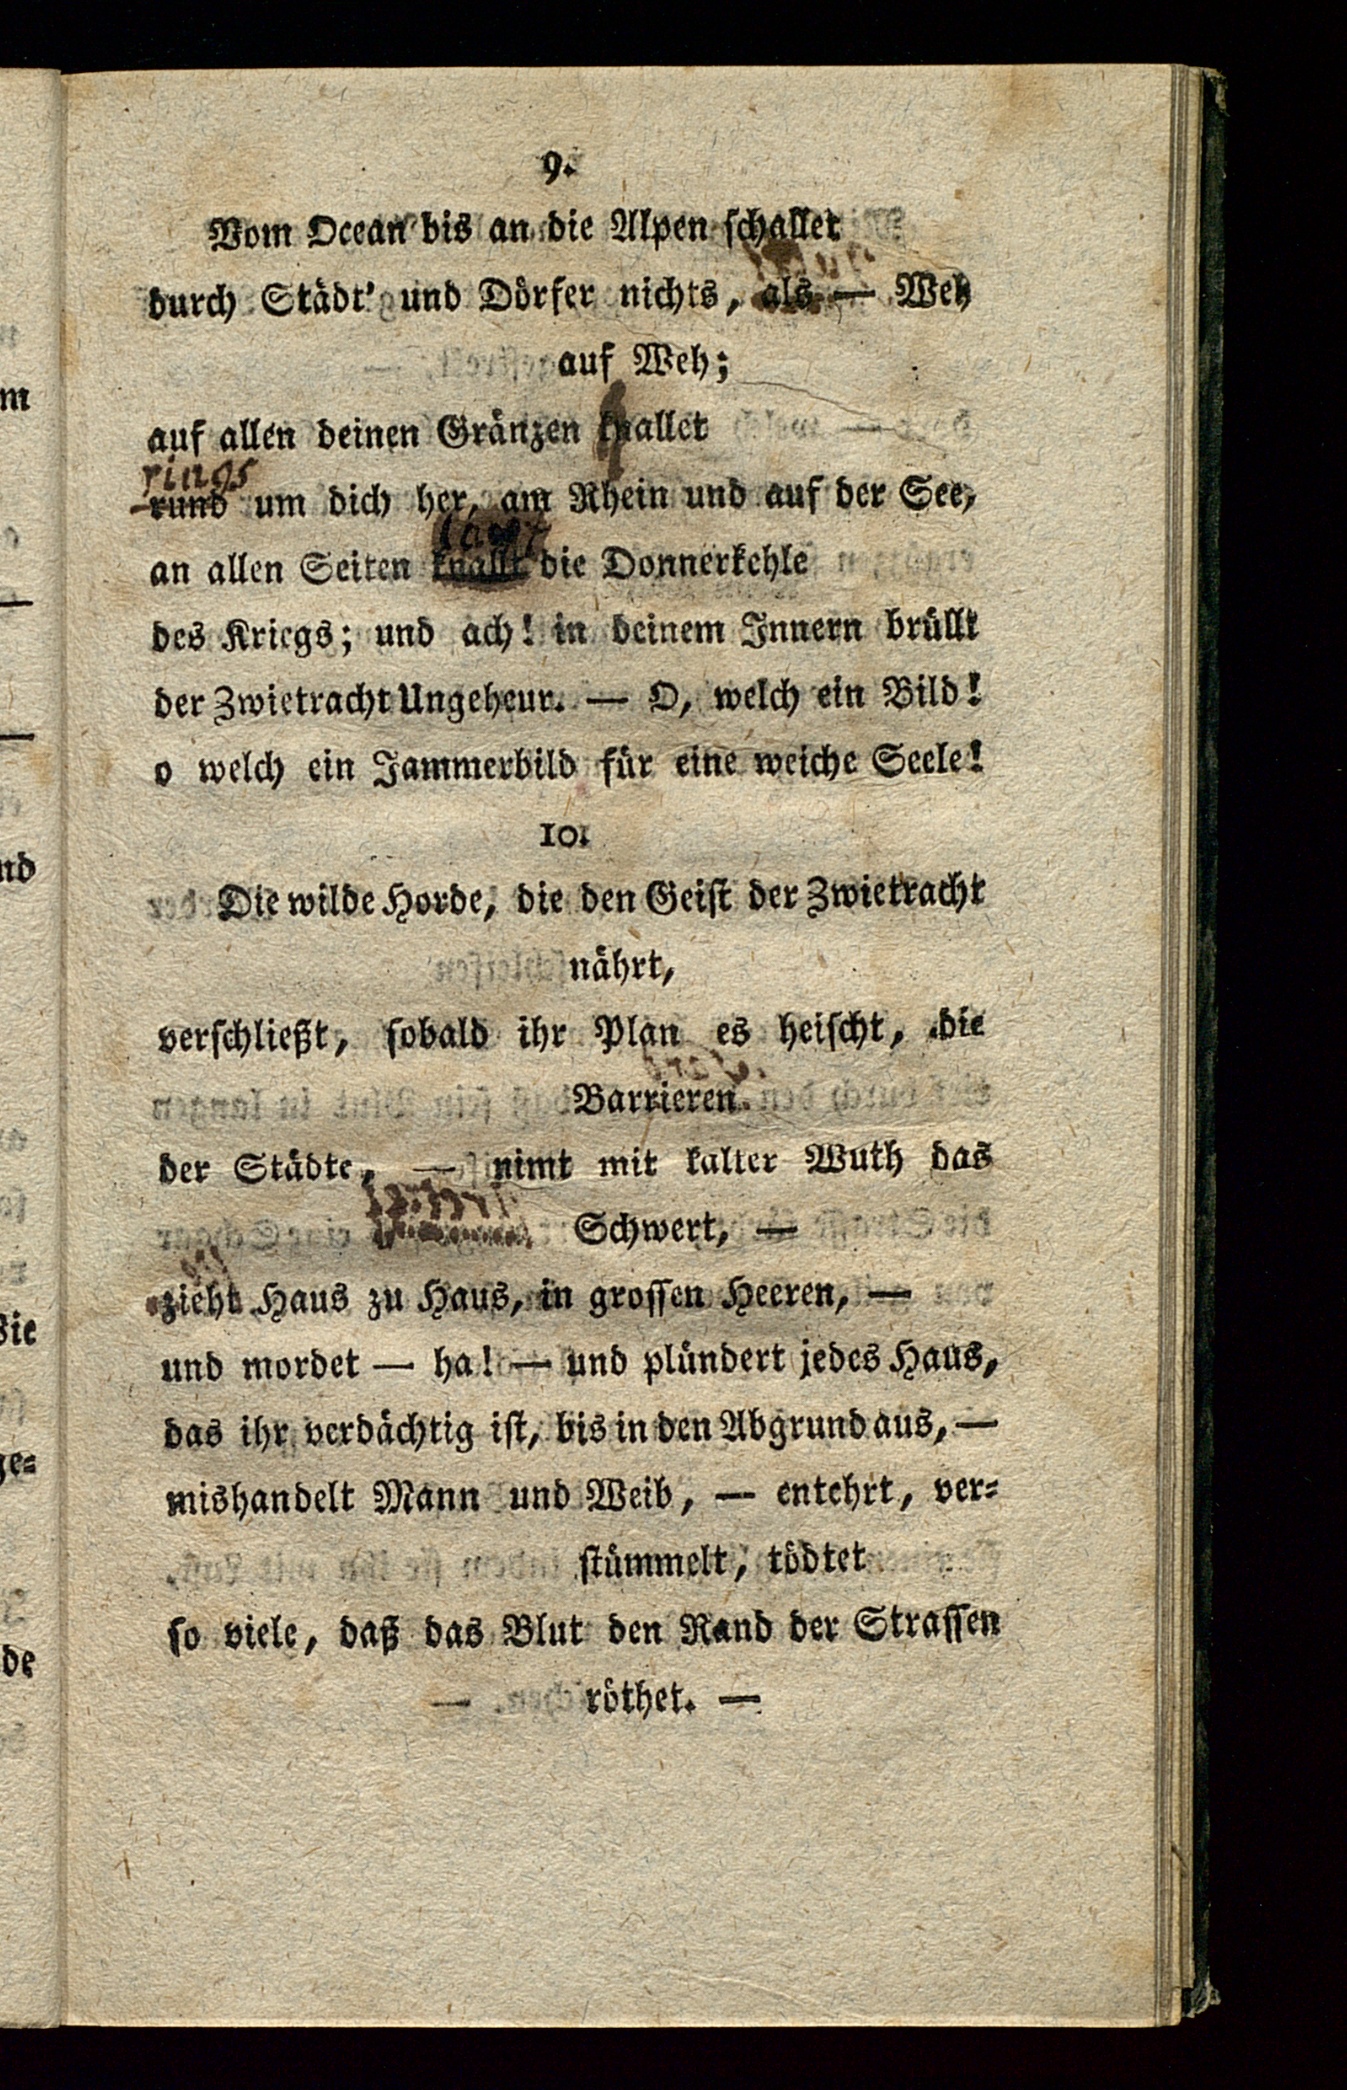 9.
Vom Ocean bis an die Alpen schallet
durch Städt' und Dörfer nichts, als — Weh
auf Weh;
auf allen deinen Gränzen knallet
rings
rund um dich her, am Rhein und auf der See,
an allen Seiten knallt die Donnerkehle
des Kriegs; und ach! in deinem Innern brüllt
der Zwietracht Ungeheur. — O, welch ein Bild!
o welch ein Jammerbild für eine weiche Seele!
10.
Die wilde Horde, die den Geist der Zwietracht
nährt,
verschließt, sobald ihr Plan es heischt, die
Barrieren
der Städte, — nimt mit kalter Wuth das
Schwert, —
zieht Haus zu Haus, in grossen Heeren, —
und mordet — ha! — und plündert jedes Haus,
das ihr verdächtig ist, bis in den Abgrund aus, —
mishandelt Mann und Weib, — entehrt, ver-
stümmelt, tödtet
so viele, daß das Blut den Rand der Strassen
röthet. —